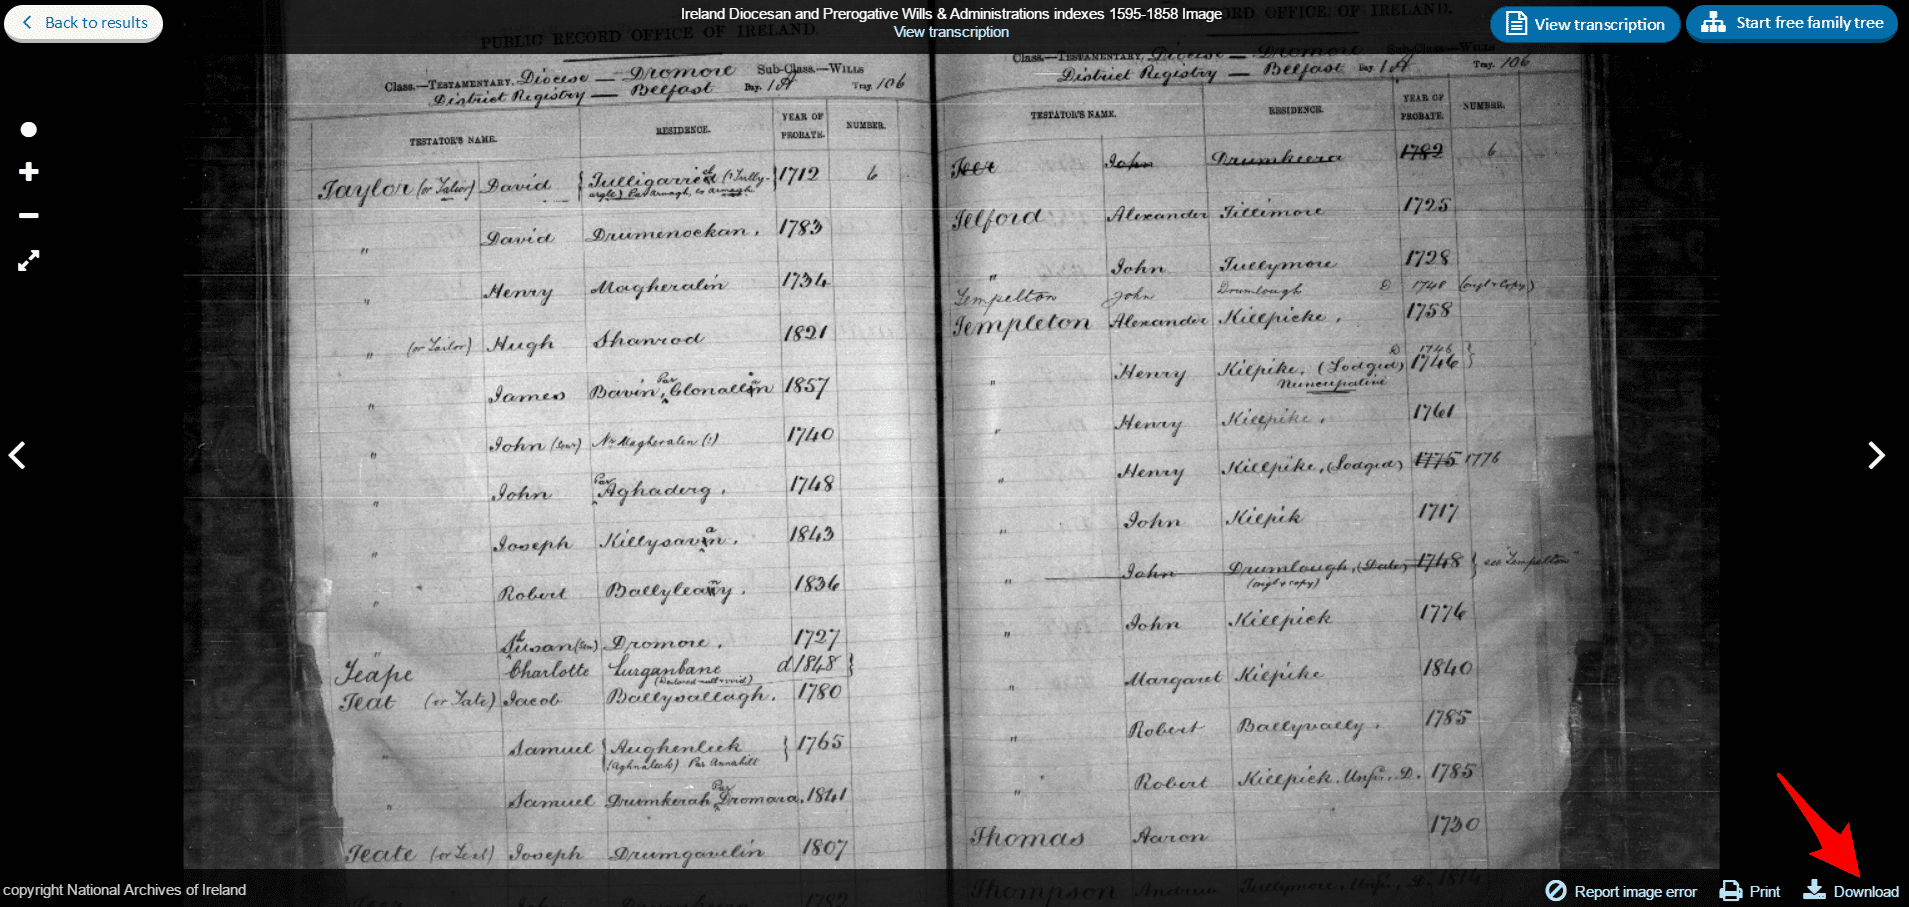 Back to results
Ireland Diocesan and Prerogative Wills & Administrations indexes 1595-1858 Image
View transcription
View transcription
Start free family tree
PUBLIC RECORD OFFICE OF IRELAND.
Class.—TESTAMENTARY. Diocese — Dromore Sub-Class.—WILLS
District Registry — Belfast Bay. 1A Tray. 106
TESTATOR'S NAME. RESIDENCE. YEAR OF PROBATE. NUMBER.
Taylor (or Talior) David Tulligarried (? Tully- 1712 6
argle) Par Armagh, co Armagh
" David Drumenockan. 1783
" Henry Magheralin 1734
" (or Tailor) Hugh Shanrod 1821
" James Bavin, Par Clonallan 1857
" John (Senr) Nr Magheralin (?) 1740
" John Par Aghaderg. 1748
" Joseph Killysavan. 1843
" Robert Ballyleany. 1836
" Susan (Sen) Dromore. 1727
Teape Charlotte Lurganbane d 1848
(Declared null & void)
Teat (or Tate) Jacob Ballysallagh. 1780
" Samuel Aughenleck 1765
(Aghnaleck) Par Annahilt
" Samuel Drumkerah, Par Dromara. 1841
Teate (or Teat) Joseph Drumgavelin 1807
Teer John 1782
RECORD OFFICE OF IRELAND.
Class.—TESTAMENTARY. Diocese — Dromore Sub-Class.—WILLS
District Registry — Belfast Bay. 1A Tray. 106
TESTATOR'S NAME. RESIDENCE. YEAR OF PROBATE. NUMBER.
Teer John Drumkeera 1782 6
Telford Alexander Tillimore 1725
" John Tullymore 1728
Tempelton John Drumlough D 1748 (origl & copy)
Templeton Alexander Killpicke. 1758
" Henry Kilpike, (Lodged) D 1746 1746
Nuncupative
" Henry Killpike. 1761
" Henry Killpike, (Lodged) 1775 1776
" John Kilpik 1717
" John Drumlough, (Date) 1748 see "Tempelton"
(origl & copy)
" John Killpick 1776
" Margaret Kilpike 1840
" Robert Ballyvally. 1785
" Robert Killpick. Unpr. D. 1785
Thomas Aaron 1730
Thompson Andrew Tullymore, Unpr, D. 1814
copyright National Archives of Ireland
Report image error
Print
Download